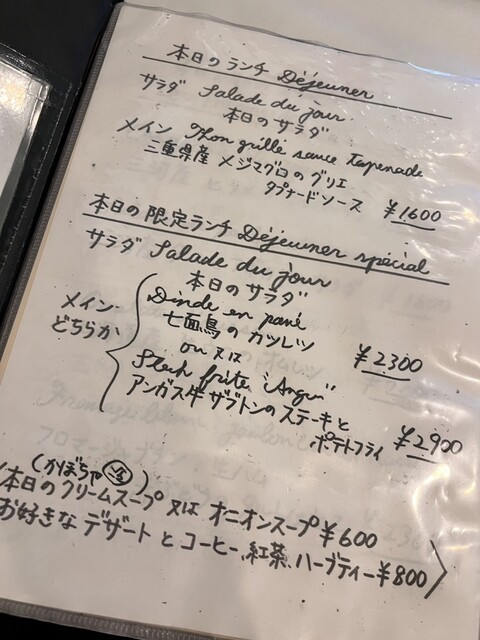 本日のランチ Déjeuner
サラダ Salade du jour
本日のサラダ
メイン Thon grillé sauce Tapenade
三重県産 メジマグロのグリエ
タプナードソース ¥1600
本日の限定ランチ Déjeuner spécial
サラダ Salade du jour
本日のサラダ
メイン・どちらか
Dinde en pané
七面鳥のカツレツ ¥2300
ou 又は
Steck frite "Angus"
アンガス牛ザブトンのステーキと
ポテトフライ ¥2900
(かぼちゃ)
本日のクリームスープ 又は オニオンスープ ¥600
お好きなデザートとコーヒー、紅茶、ハーブティー ¥800